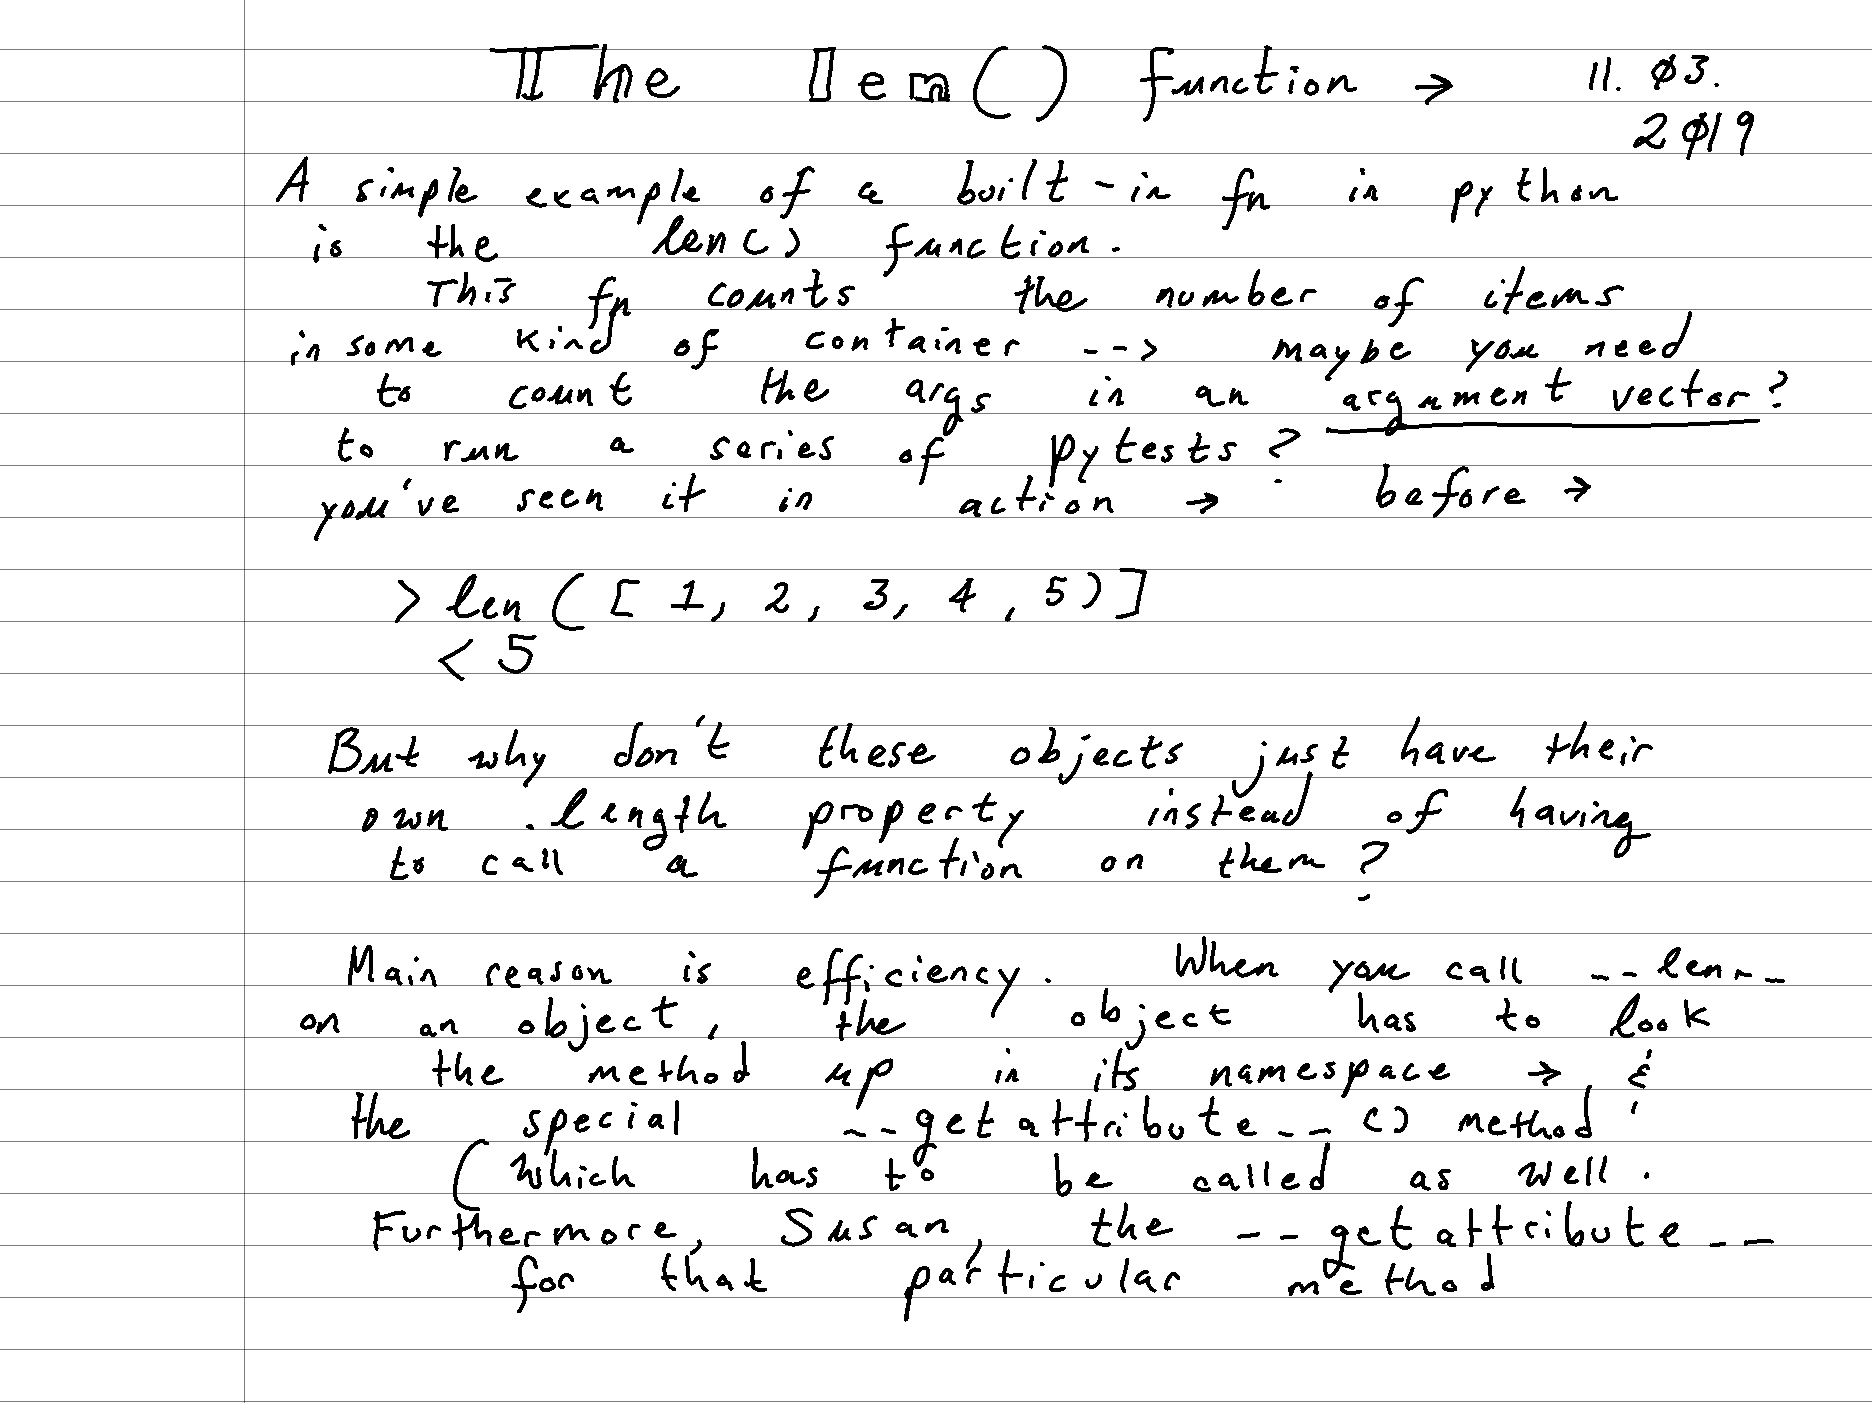 The len() function → 11. Ø3.
2Ø19
A simple example of a built-in fn in python
is the len() function.
This fn counts the number of items
in some kind of container --> maybe you need
to count the args in an argument vector?
to run a series of pytests?
you've seen it in action → before →
> len ( [ 1, 2, 3, 4, 5 ) ]
< 5
But why don't these objects just have their
own .length property instead of having
to call a function on them?
Main reason is efficiency. When you call __len__
on an object, the object has to look
the method up in its namespace → &
the special __getattribute__() method,
(which has to be called as well.
Furthermore, Susan, the __getattribute__
for that particular method